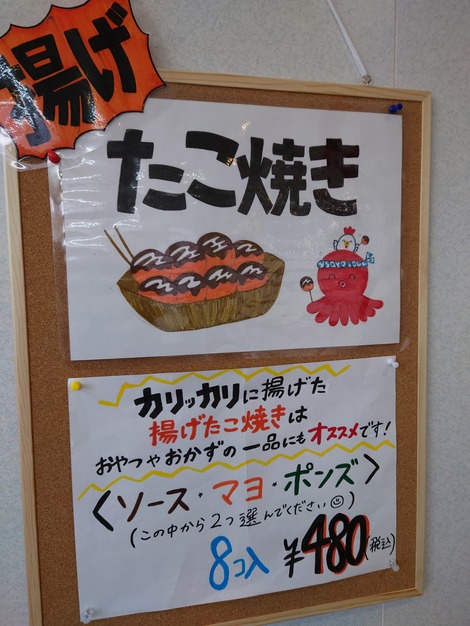 揚げ
たこ焼き
カリッカリに揚げた
揚げたこ焼きは
おやつやおかずの一品にもオススメです！
〈ソース・マヨ・ポンズ〉
(この中から2つ選んでください☺)
8コ入 ¥480(税込)